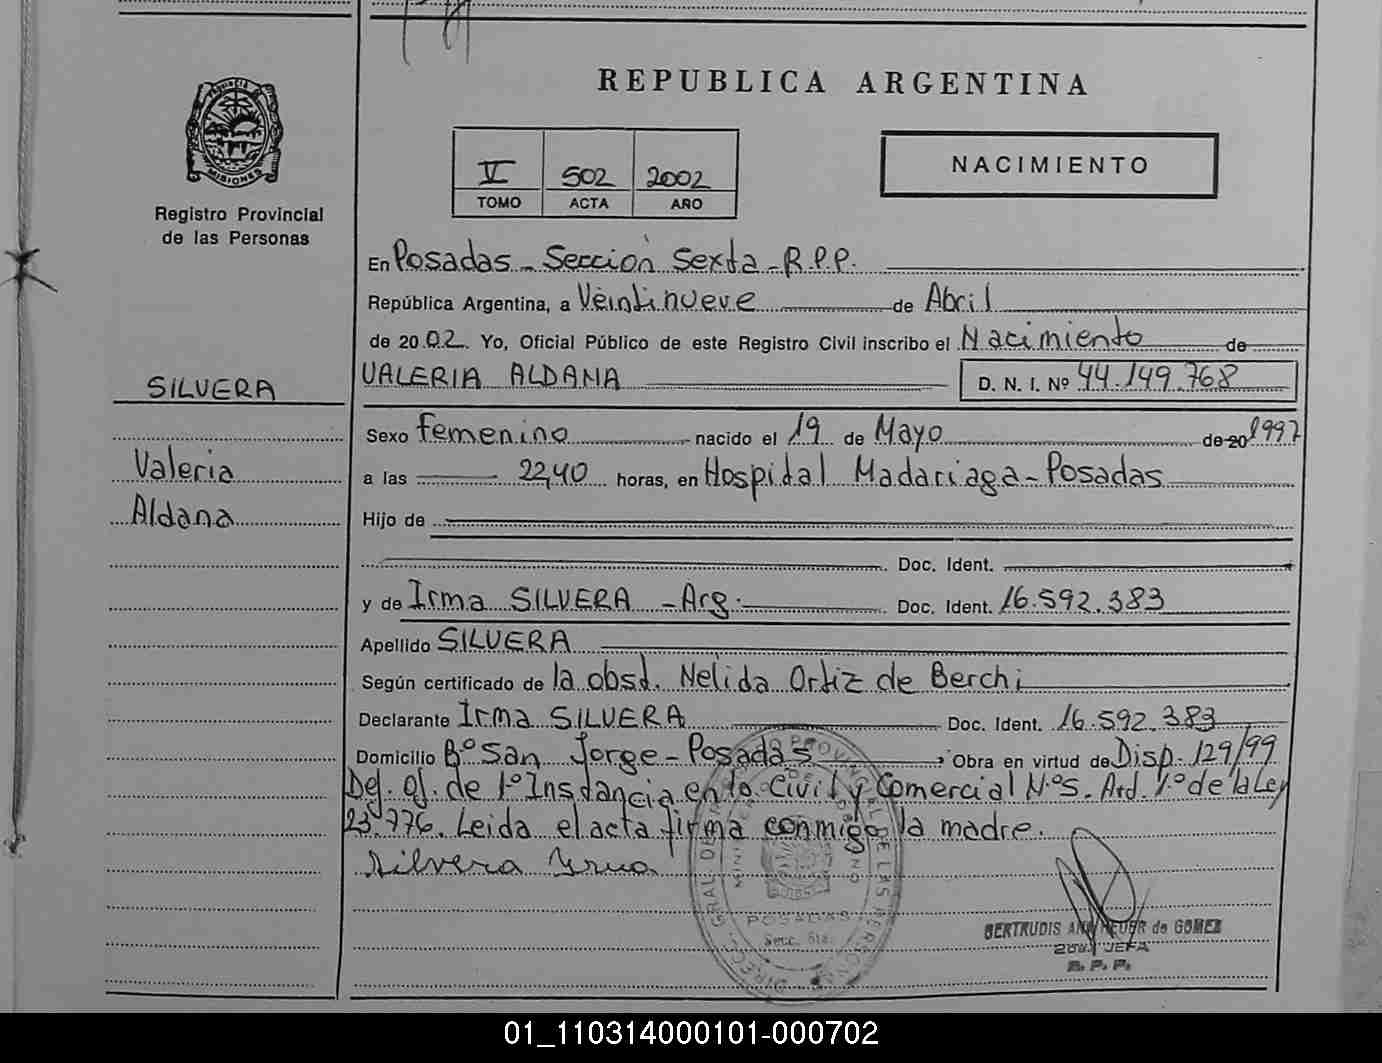 REPUBLICA ARGENTINA
MISIONES
Registro Provincial
de las Personas
V 502 2002
TOMO ACTA AÑO
NACIMIENTO
En Posadas - Sección Sexta - R.P.P.
República Argentina, a Veintinueve de Abril
de 20 02. Yo, Oficial Público de este Registro Civil inscribo el Nacimiento de
SILVERA
Valeria
Aldana
VALERIA ALDANA D. N. I. Nº 44.149.768
Sexo femenino nacido el 19 de Mayo de 20 1997
a las 22,40 horas, en Hospital Madariaga - Posadas
Hijo de
Doc. Ident.
y de Irma SILVERA - Arg. Doc. Ident. 16.592.383
Apellido SILVERA
Según certificado de la obst. Nelida Ortiz de Berchi
Declarante Irma SILVERA Doc. Ident. 16.592.383
Domicilio Bº San Jorge - Posadas, Obra en virtud de Disp. 129/99
Def. Of. de 1º Instancia en lo Civil y Comercial Nº 5. Art. 1º de la Ley
23.776. Leida el acta firma conmigo la madre.
Silvera Irma
POSADAS
Secc. 6ta.
GERTRUDIS de GOMEZ
JEFA
R. P. P.
01_110314000101-000702